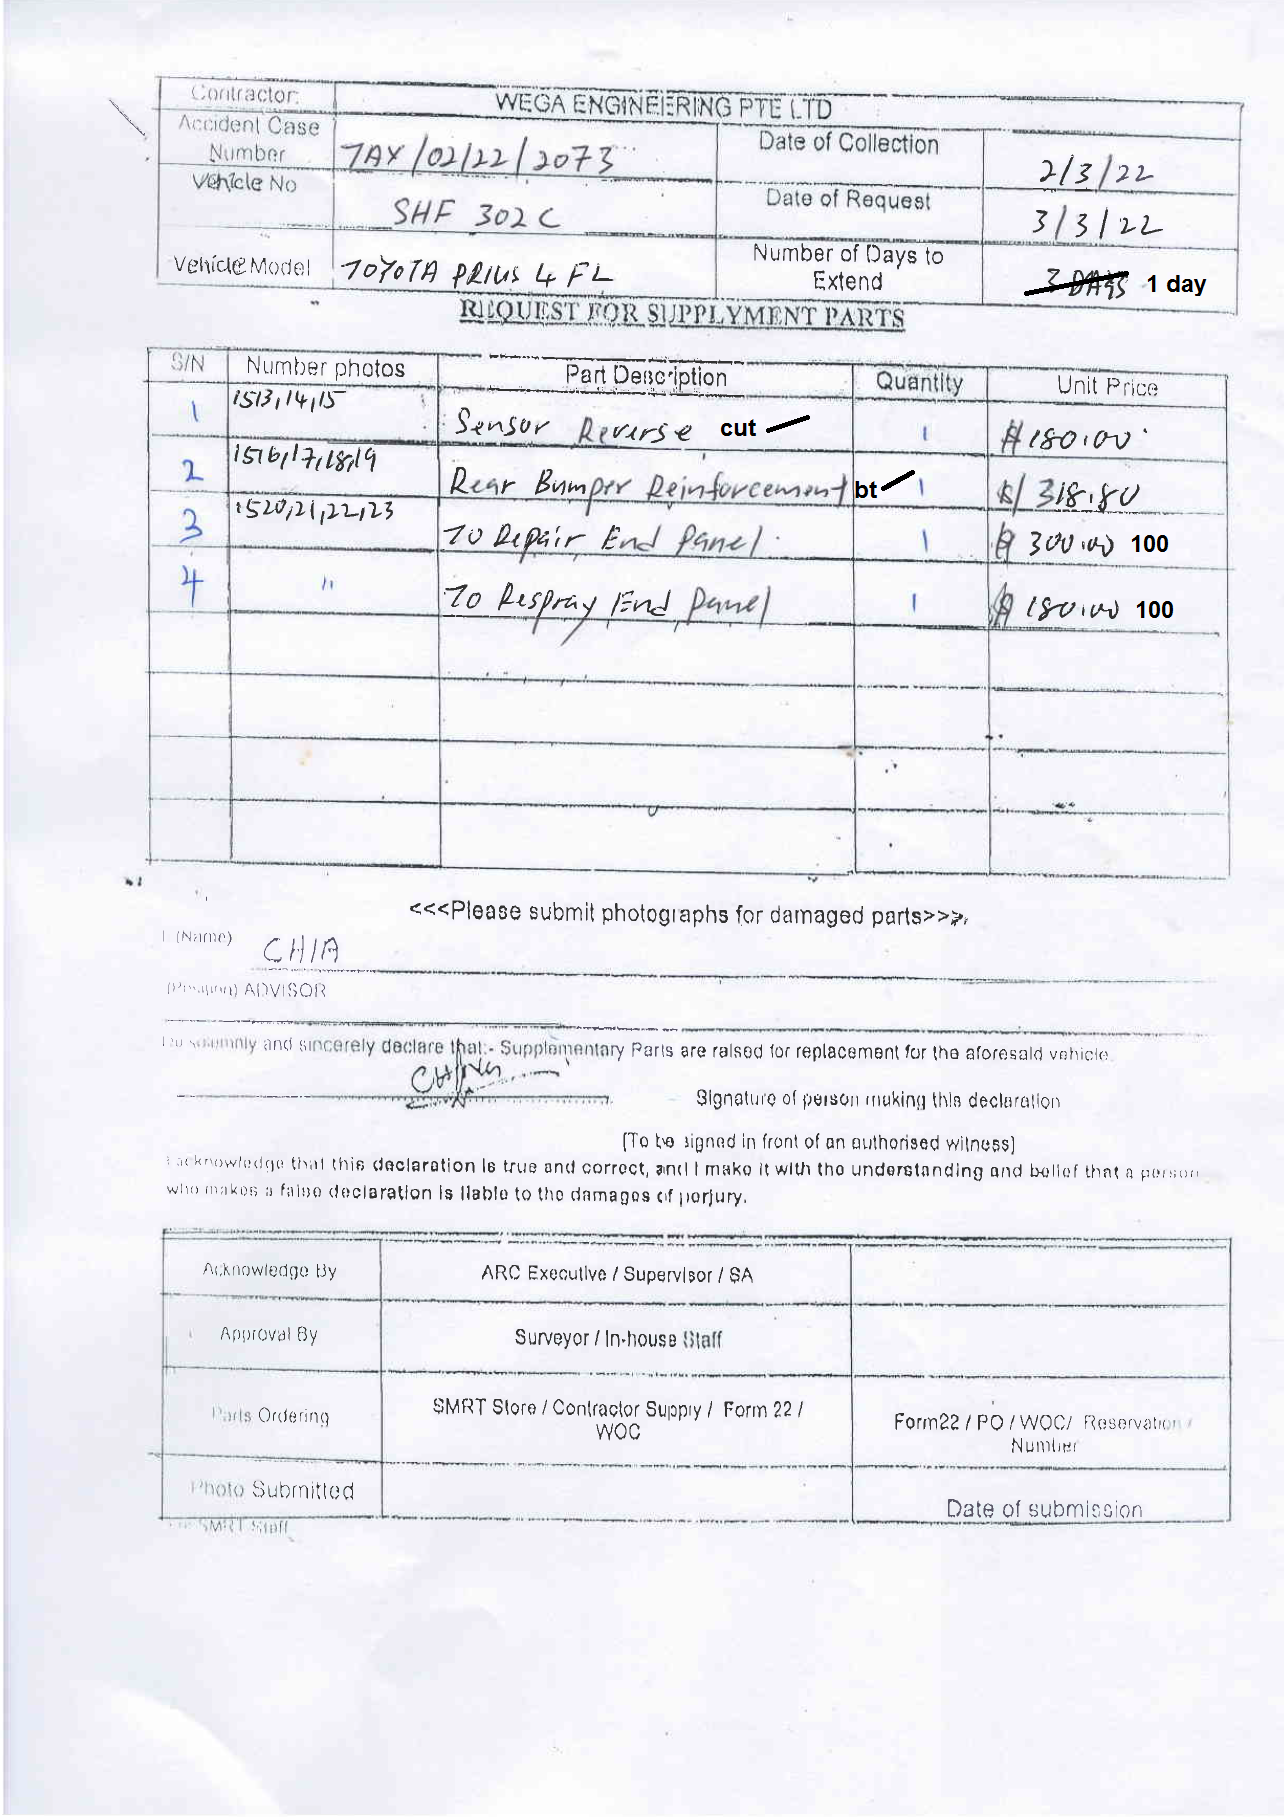 Contractor: WEGA ENGINEERING PTE LTD
Accident Case Number TAX/02/22/2073 Date of Collection 2/3/22
Vehicle No SHF 302C Date of Request 3/3/22
Vehicle Model TOYOTA PRIUS 4 FL Number of Days to Extend 3 DAYS 1 day
REQUEST FOR SUPPLYMENT PARTS
S/N Number photos Part Description Quantity Unit Price
1 1513,14,15 Sensor Reverse cut 1 $180.00
2 1516,17,18,19 Rear Bumper Reinforcement bt 1 $ 318.80
3 1520,21,22,23 To Repair End Panel 1 $ 300.00 100
4 " To Respray End Panel 1 $ 180.00 100
<<<Please submit photographs for damaged parts>>>
I (Name) CHIA
(Position) ADVISOR
Do solemnly and sincerely declare that:- Supplementary Parts are raised for replacement for the aforesaid vehicle.
Signature of person making this declaration
[To be signed in front of an authorised witness]
I acknowledge that this declaration is true and correct, and I make it with the understanding and belief that a person
who makes a false declaration is liable to the damages of perjury.
Acknowledge By ARC Executive / Supervisor / SA
Approval By Surveyor / In-house Staff
Parts Ordering SMRT Store / Contractor Supply / Form 22 / WOC Form22 / PO / WOC/ Reservation / Number
Photo Submitted Date of submission
SMRT Staff